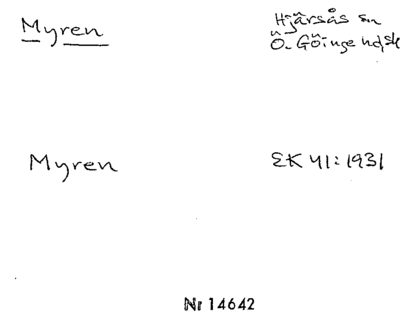 Myren
Hjärsås sn
Ö. Göinge hd, Sk
Myren
EK 41:1931
Nr 14642